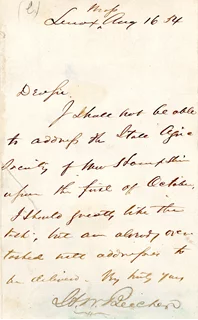 (2)
Mass
Lenox, Aug 16 54
Dear Sir
I shall not be able
to address the State Agric
Society of New Hampshire
upon the first of October.
I should greatly like the
task, but am already over
tasked with addresses to
be delivered. Very truly yours
H. W. Beecher